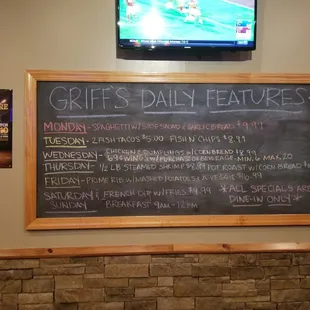 GRIFF'S DAILY FEATURES
MONDAY - SPAGHETTI W/ SIDE SALAD & GARLIC BREAD $9.99
TUESDAY - 2 FISH TACOS $5.00 FISH N CHIPS $8.99
WEDNESDAY - CHICKEN & DUMPLINGS W/ CORN BREAD $9.99
69¢ WINGS W/ PURCHASE OF BEVERAGE. MIN 6 MAX 20
THURSDAY - 1/2 LB STEAMED SHRIMP $8.99 POT ROAST W/ CORN BREAD
FRIDAY - PRIME RIB W/ MASHED POTATOES & A VEGGIE $16.99
SATURDAY & - FRENCH DIP W/ FRIES $9.99 *ALL SPECIALS ARE
SUNDAY BREAKFAST 9AM - 12PM DINE-IN ONLY*